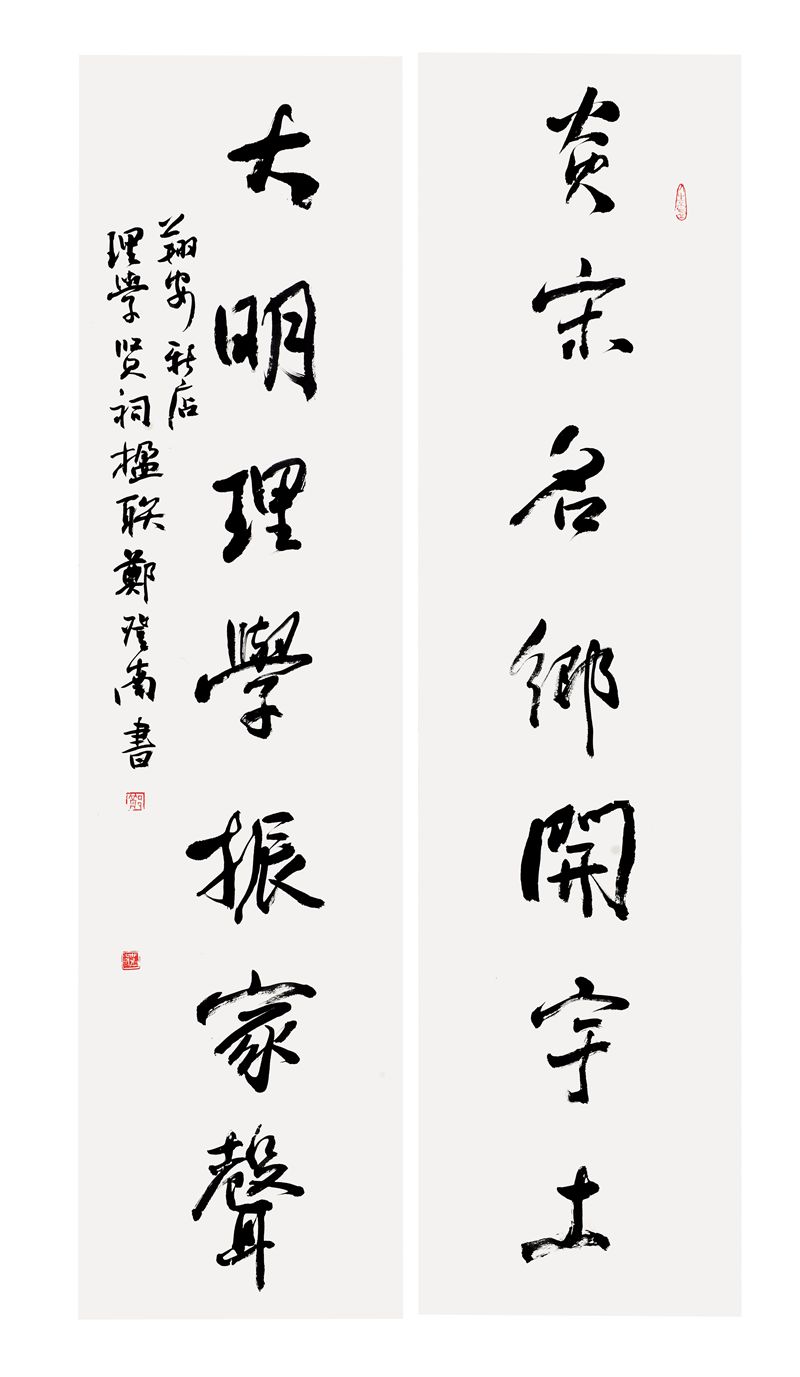 炎宋名鄉開宇土
大明理學振家聲
翔安新店
理學賢祠楹联鄭登南書